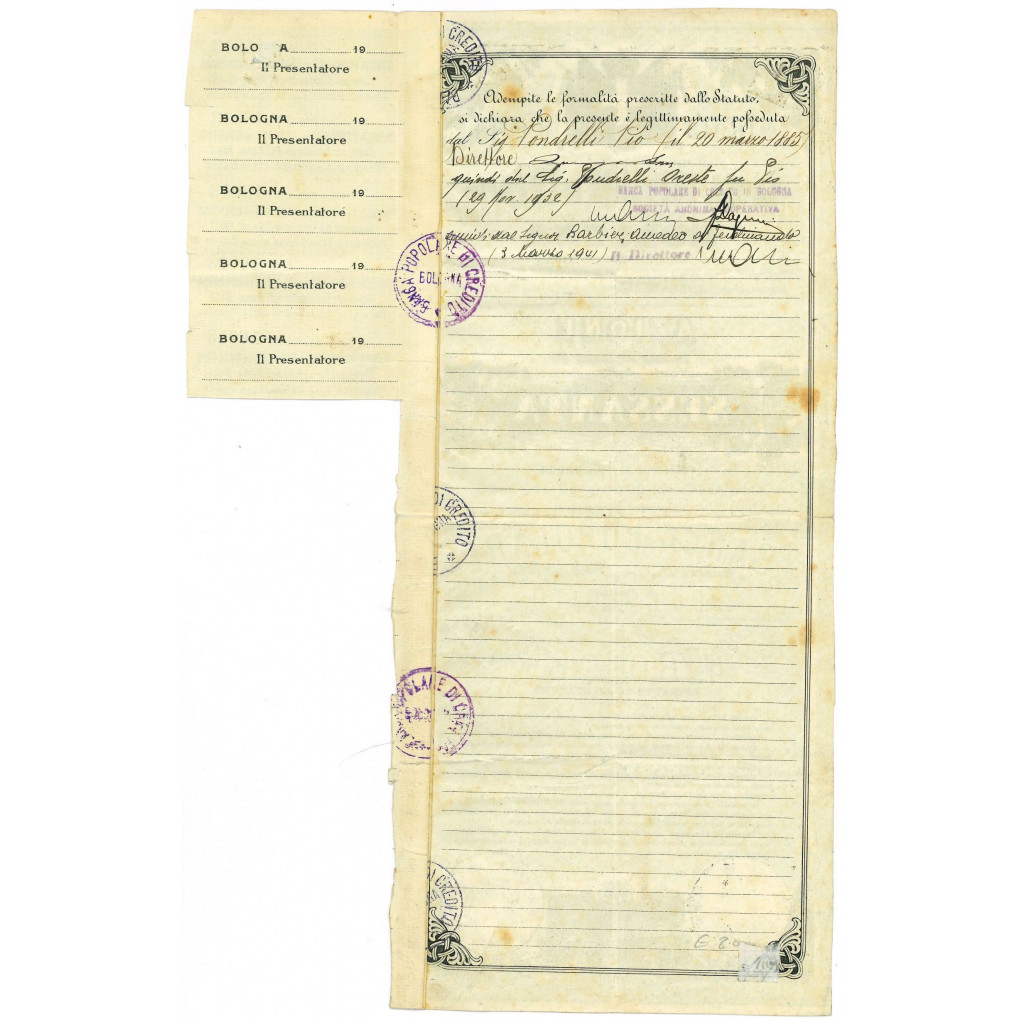 BOLO A 19
Il Presentatore
BOLOGNA 19
Il Presentatore
BOLOGNA 19
Il Presentatore
BOLOGNA 19
Il Presentatore
BOLOGNA 19
Il Presentatore
DI CREDITO
Adempite le formalità prescritte dallo Statuto,
si dichiara che la presente è legittimamente posseduta
dal Sig Pondrelli Pio (il 20 marzo 1885)
Direttore
quindi dal Sig. Pondrelli Oreste fu Pio
BANCA POPOLARE DI CREDITO IN BOLOGNA
SOCIETÀ ANONIMA COOPERATIVA
(29 1932)
quindi dal Signor Barbieri Amedeo di Ferdinando
(3 Marzo 1941) Il Direttore
BANCA POPOLARE DI CREDITO
BOLOGNA
DI CREDITO
POLARE DI CRE
DI CREDITO